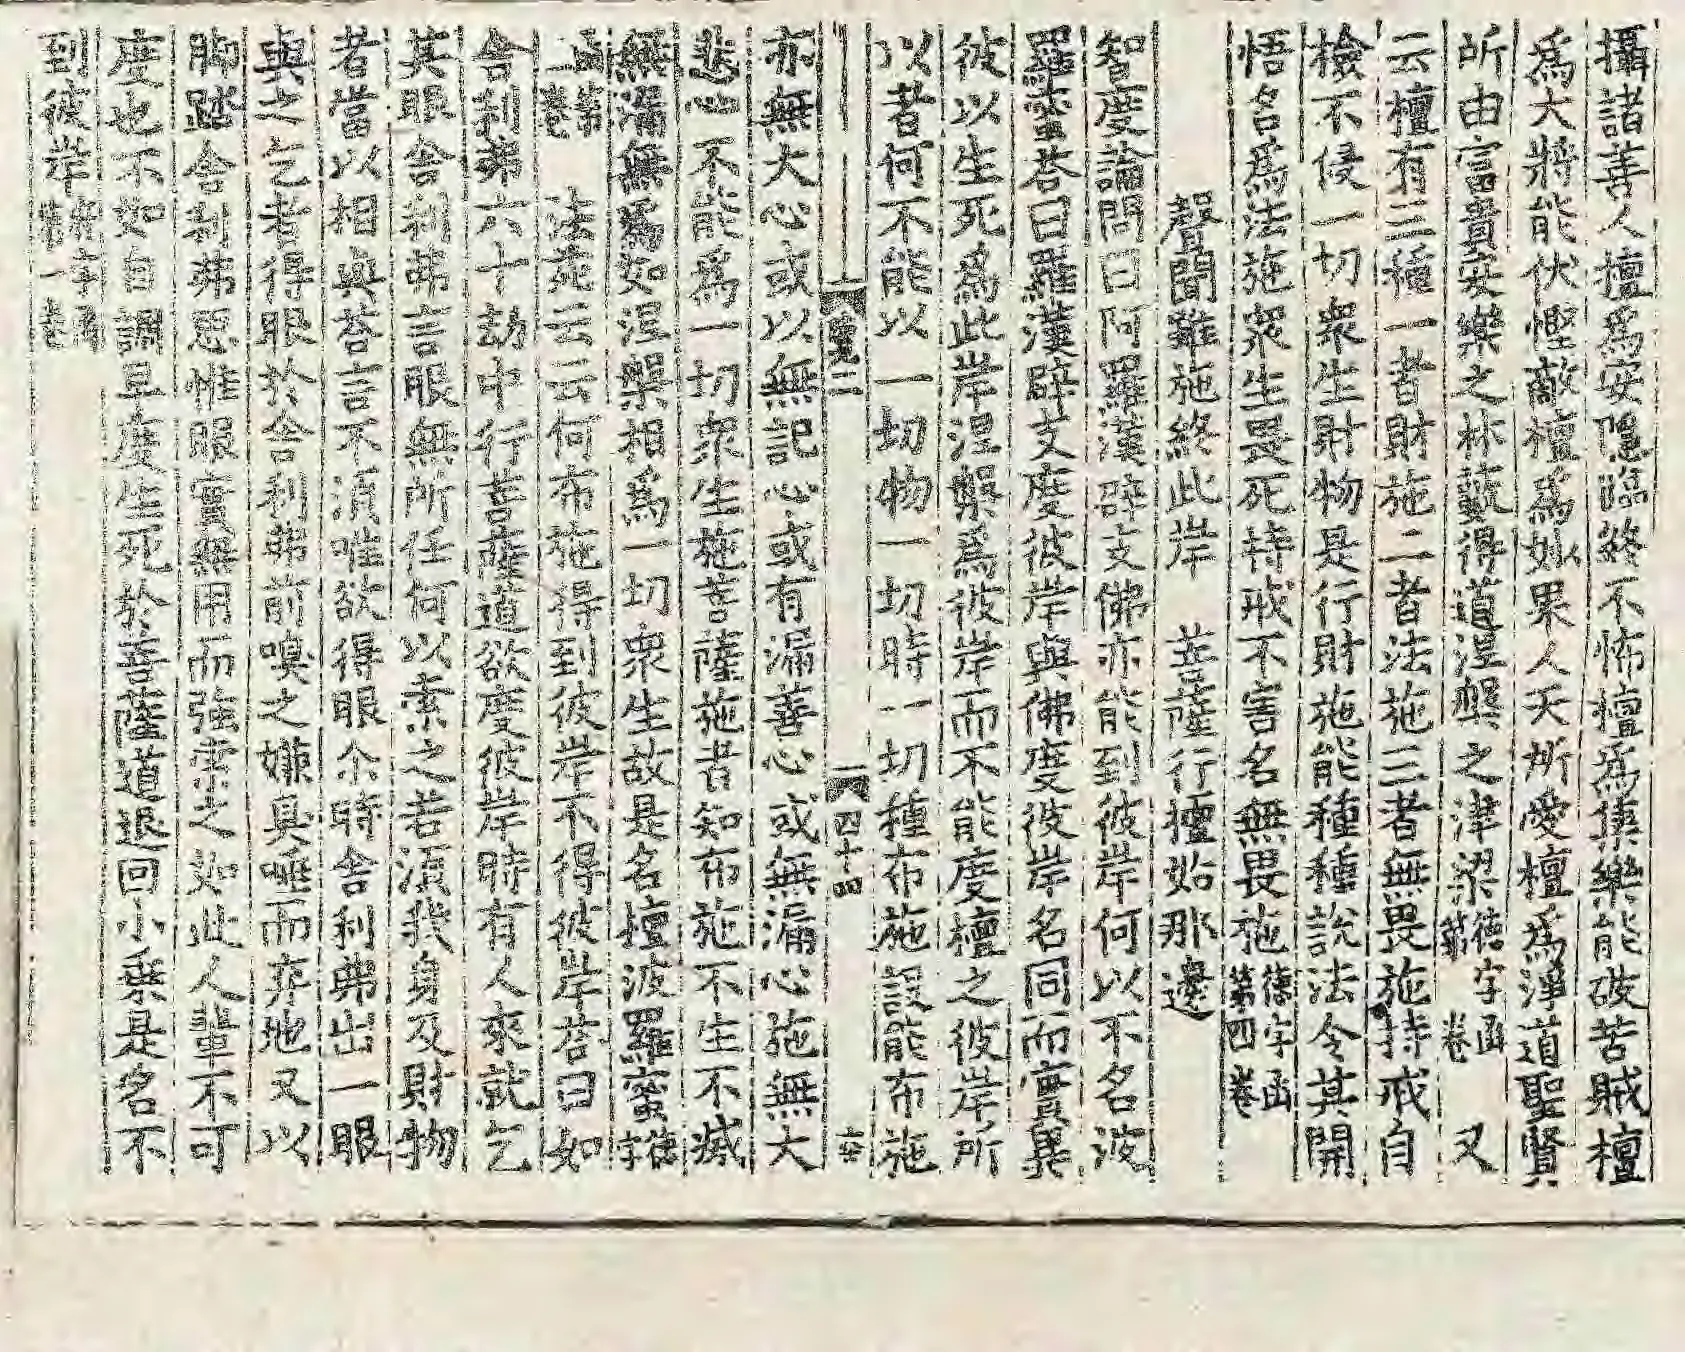 攝諸善人檀爲安隱臨終不怖檀爲集樂能破苦賊檀
爲大將能伏慳敵檀爲妙果人天所愛檀爲淨道聖賢
所由富貴安樂之林藪得道涅槃之津梁德字函第卷 又
云檀有三種一者財施二者法施三者無畏施持戒自
檢不侵一切衆生財物是行財施能種種說法令其開
悟名爲法施衆生畏死持戒不害名無畏施德字函第四卷
聲聞雖施終此岸 菩薩行檀始那邊
智度論問曰阿羅漢辟支佛亦能到彼岸何以不名波
羅蜜荅曰羅漢辟支度彼岸與佛度彼岸名同而實異
彼以生死爲此岸涅槃爲彼岸而不能度檀之彼岸所
以者何不能以一切物一切時一切種布施設能布施
四十四
亦無大心或以無記心或有漏善心或無漏心施無大
悲心不能爲一切衆生施菩薩施者知布施不生不滅
無漏無爲如涅槃相爲一切衆生故是名檀波羅蜜
法施云云何布施得到彼岸不得彼岸荅曰如
舍利弗六十劫中行菩薩道欲度彼岸時有人來就乞
其眼舍利弗言眼無所任何以索之若須我身及財物
者當以相與荅言不須唯欲得眼尒時舍利弗出一眼
與之乞者得眼於舍利弗前嗅之嫌臭唾而弃地又以
脚踏舍利弗思惟眼實無用而強索之如此人輩不可
度也不如自調早度生死於菩薩道退回小乘是名不
到彼岸